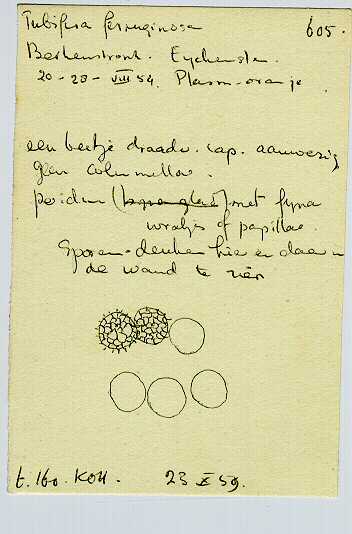 Tubifera ferruginosa 605.
Berkenstronk. Eyckenstein.
20-28-VIII 54. Plasm-oranje
een beetje draadv. cap. aanwezig
geen columellae.
peridium met fijne
wratjes of papillae.
Sporen-deuken hier en daar in
de wand te zien
t. 160. KOH. 23 X 59.